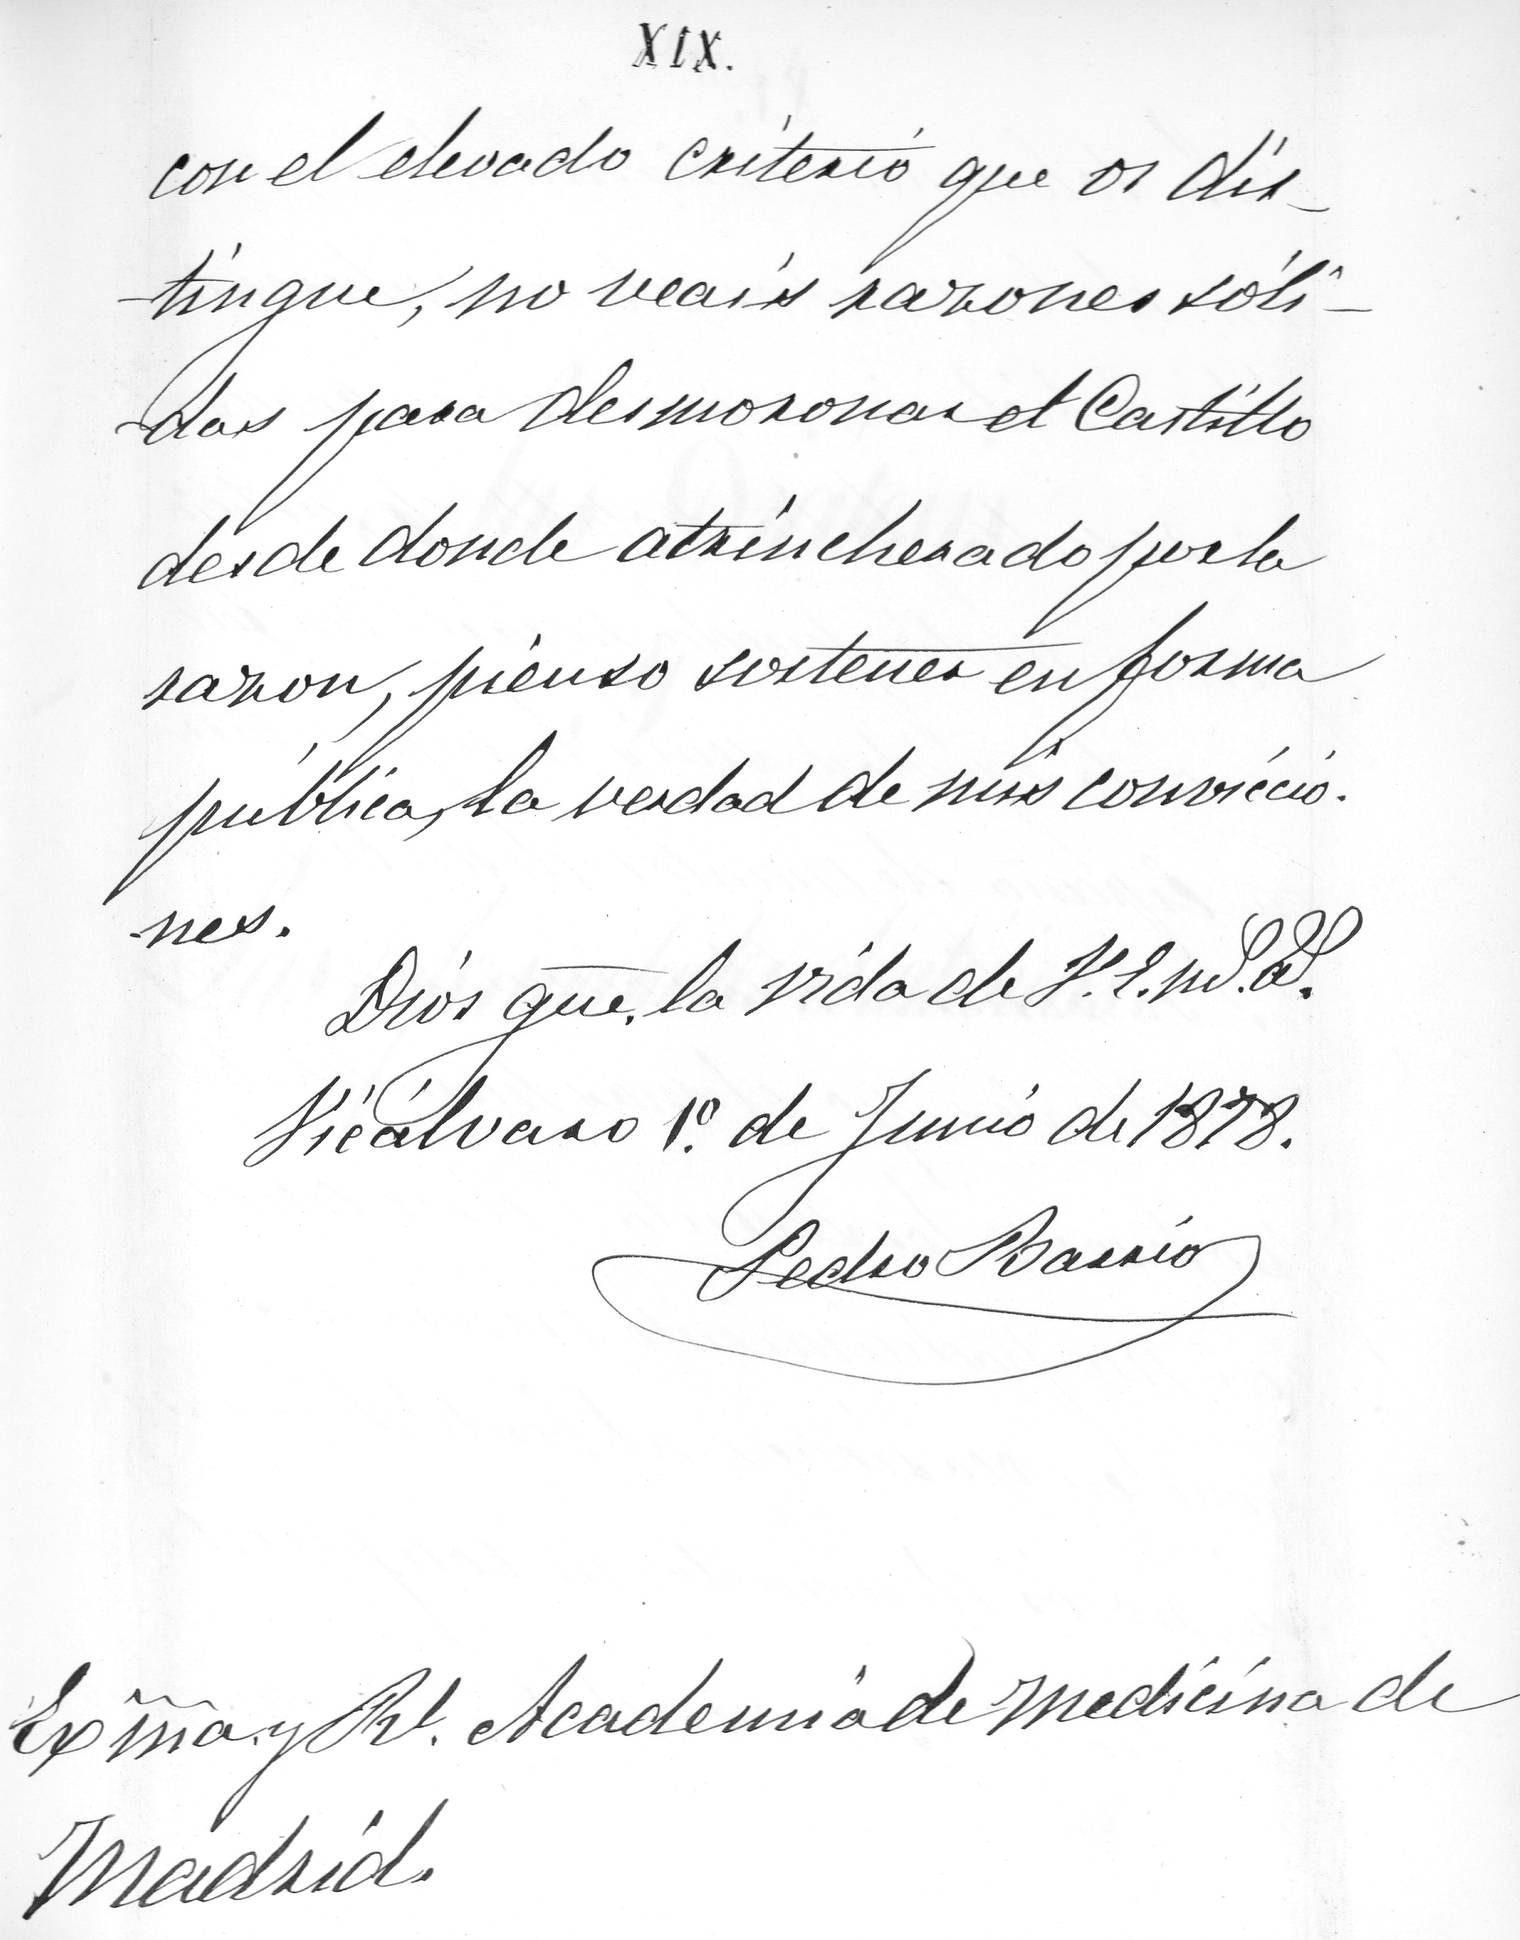 XIX.
con el elevado criterio que os dis-
-tingue, no veais razones sóli-
-das para desmoronar el Castillo
desde donde atrincherado por la
razon, pienso sostener en forma
pública, la verdad de mis conviccio-
-nes.
Dios gue. la vida de V.E. ms. as.
Vicálvaro 1º. de Junio de 1878.
Pedro Barrio
Exm̃a. y Rl. Academia de Medicina de
Madrid.